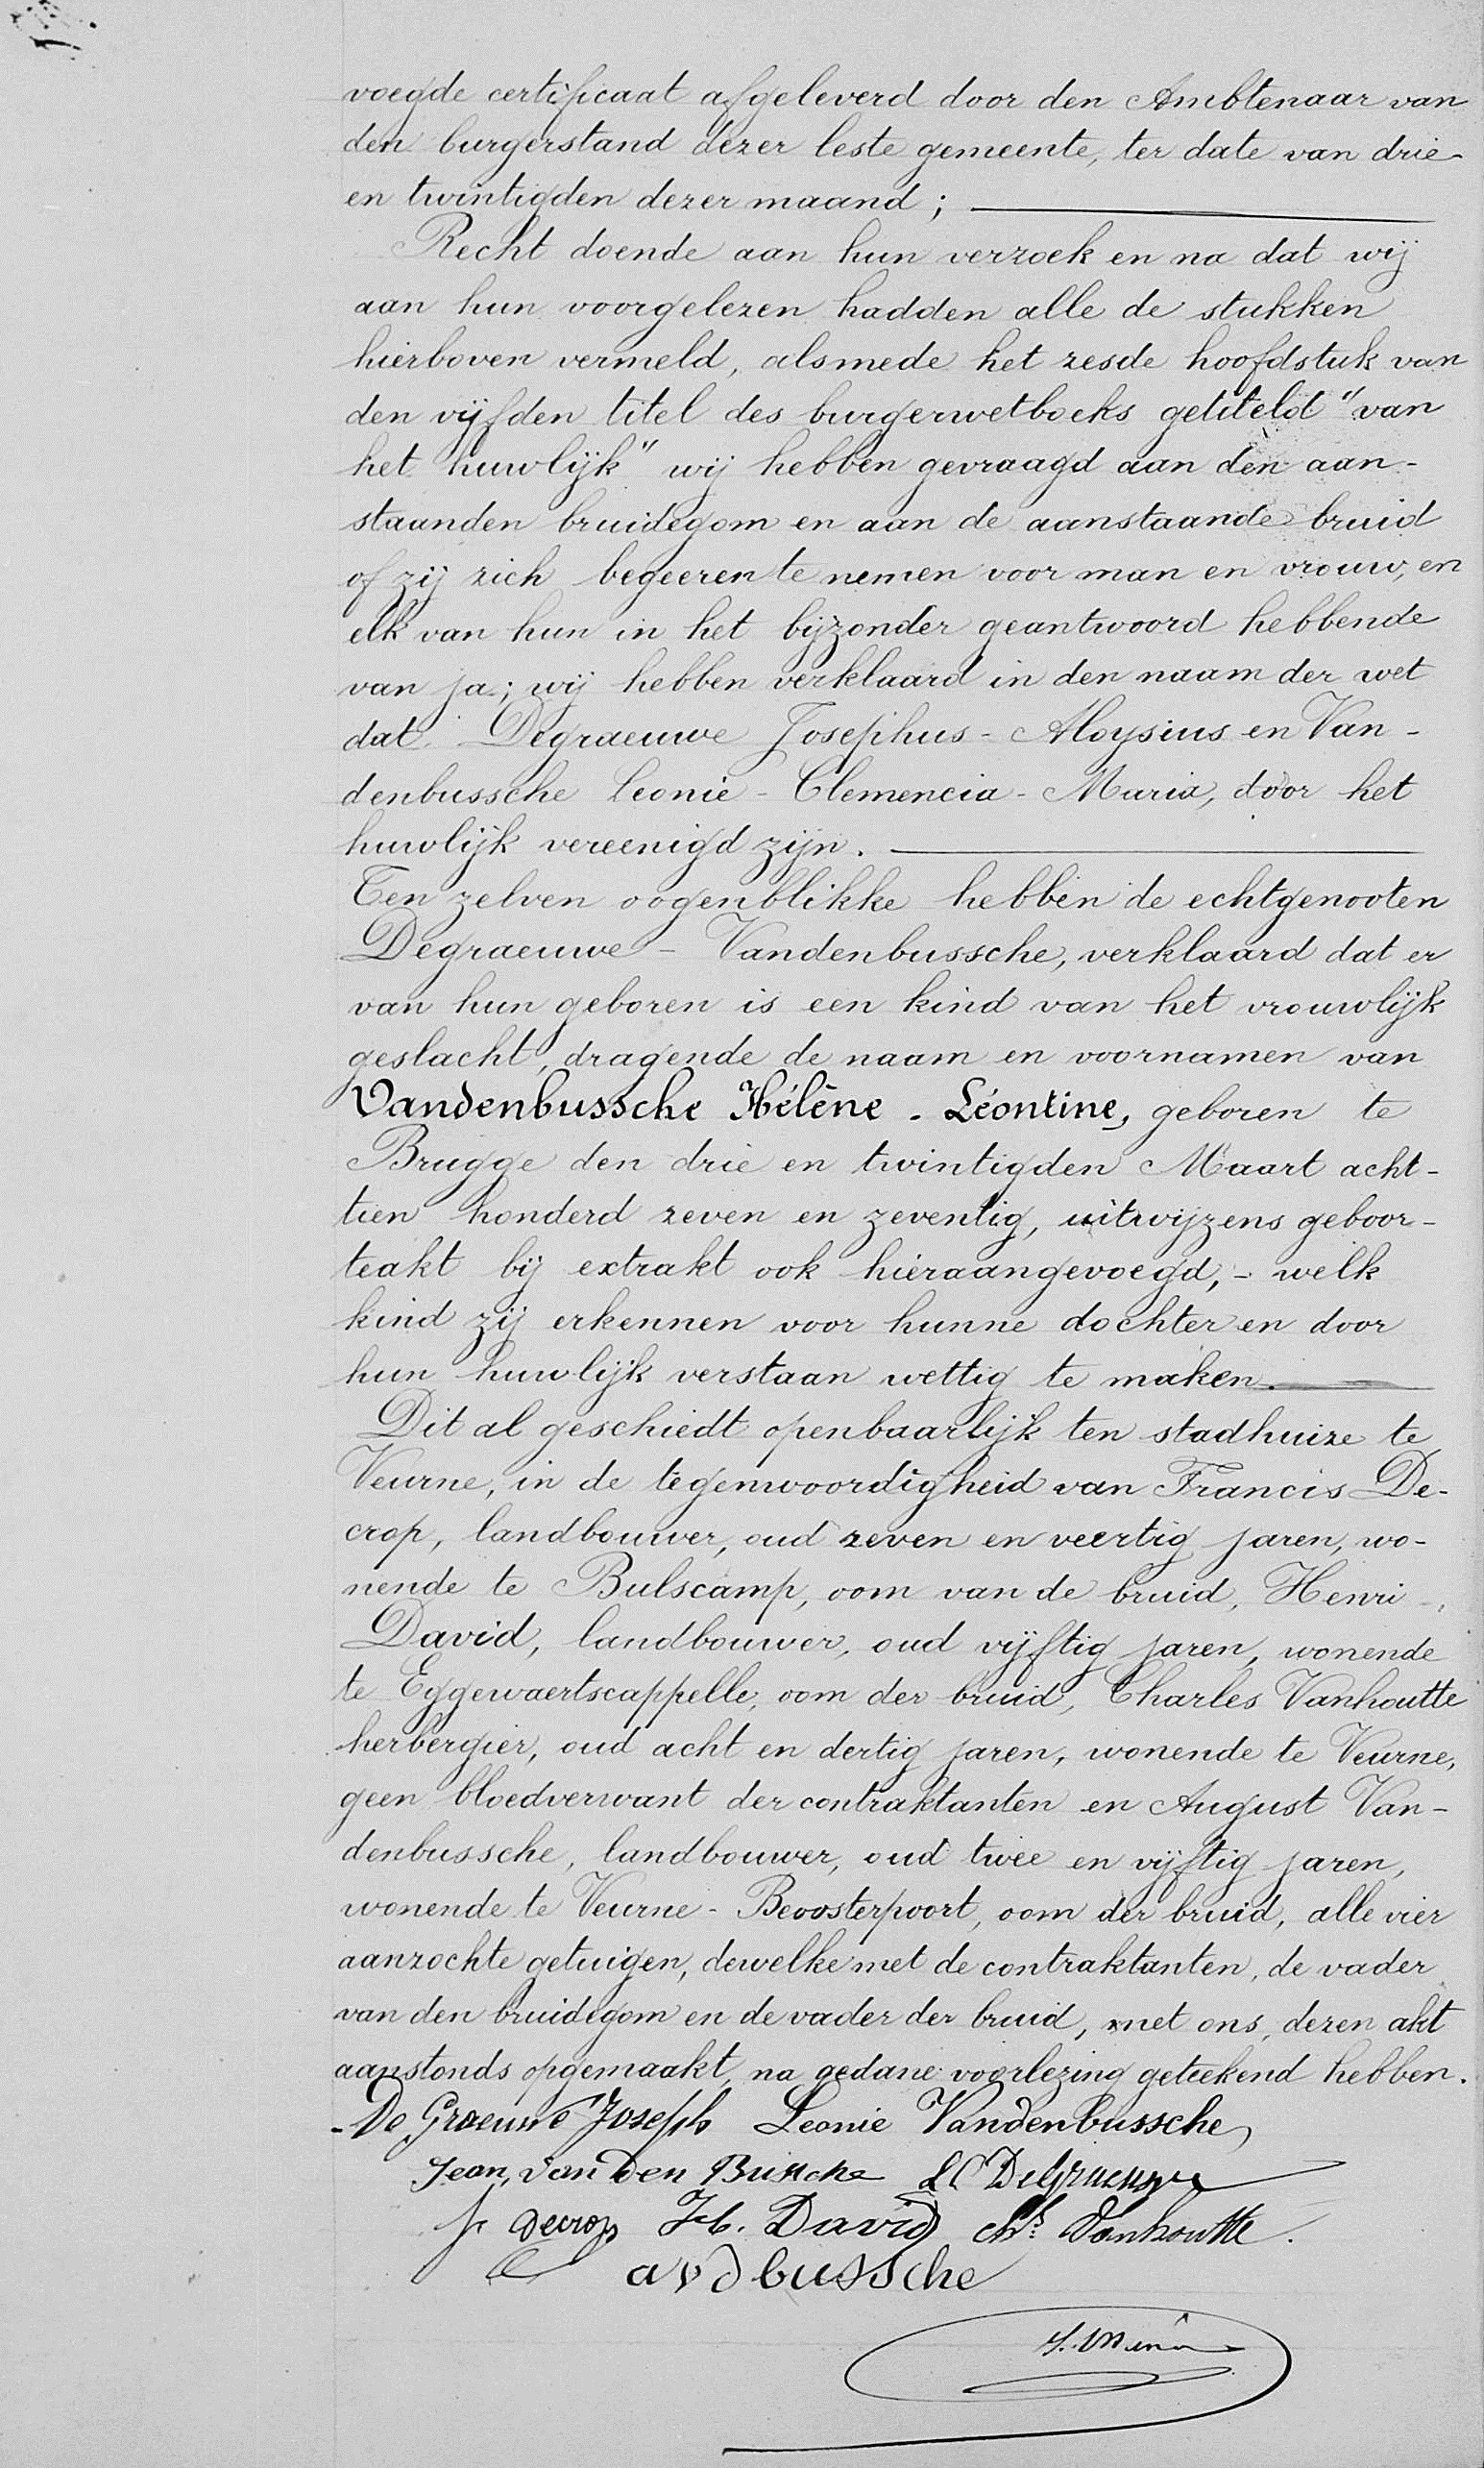 voegde certificaat afgeleverd door den Ambtenaar van
den burgerstand dezer leste gemeente, ter date van drie
en twintigden dezer maand;
Recht doende aan hun verzoek en na dat wij
aan hun voorgelezen hadden alle de stukken
hierboven vermeld, alsmede het zesde hoofdstuk van
den vijfden titel des burgerwetboeks getiteld "van
het huwlijk" wij hebben gevraagd aan den aan-
staanden bruidegom en aan de aanstaande bruid
of zij zich begeeren te nemen voor man en vrouw, en
elk van hun in het bijzonder geantwoord hebbende
van ja; wij hebben verklaard in den naam der wet
dat Degraeuwe Josephus-Aloysius en Van-
denbussche Leonie-Clemencia-Maria, door het
huwlijk vereenigd zijn.
Ten zelven oogenblikke hebben de echtgenooten
Degraeuwe-Vandenbussche, verklaard dat er
van hun geboren is een kind van het vrouwlijk
geslacht, dragende de naam en voornamen van
Vandenbussche Hélène-Léontine, geboren te
Brugge den drie en twintigden Maart acht-
tien honderd zeven en zeventig, uitwijzens geboor-
teakt bij extrakt ook hieraangevoegd,- welk
kind zij erkennen voor hunne dochter en door
hun huwlijk verstaan wettig te maken.
Dit al geschiedt openbaarlijk ten stadhuize te
Veurne, in de tegenwoordigheid van Francis De-
crop, landbouwer, oud zeven en veertig jaren, wo-
nende te Bulscamp, oom van de bruid, Henri
David, landbouwer, oud vijftig jaren, wonende
te Eggewaertscappelle, oom der bruid, Charles Vanhoutte
herbergier, oud acht en dertig jaren, wonende te Veurne,
geen bloedverwant der contraktanten en August Van-
denbussche, landbouwer, oud twee en vijftig jaren,
wonende te Veurne-Beoosterpoort, oom der bruid, alle vier
aanzochte getuigen, dewelke met de contraktanten, de vader
van den bruidegom en de vader der bruid, met ons, dezen akt
aanstonds opgemaakt, na gedane voorlezing geteekend hebben.
De Graeuwe Joseph Leonie Vandenbussche
Jean, van Den Bussche DeGraeuwe
Decrop H. David Ch.s Vanhoutte.
avdbussche